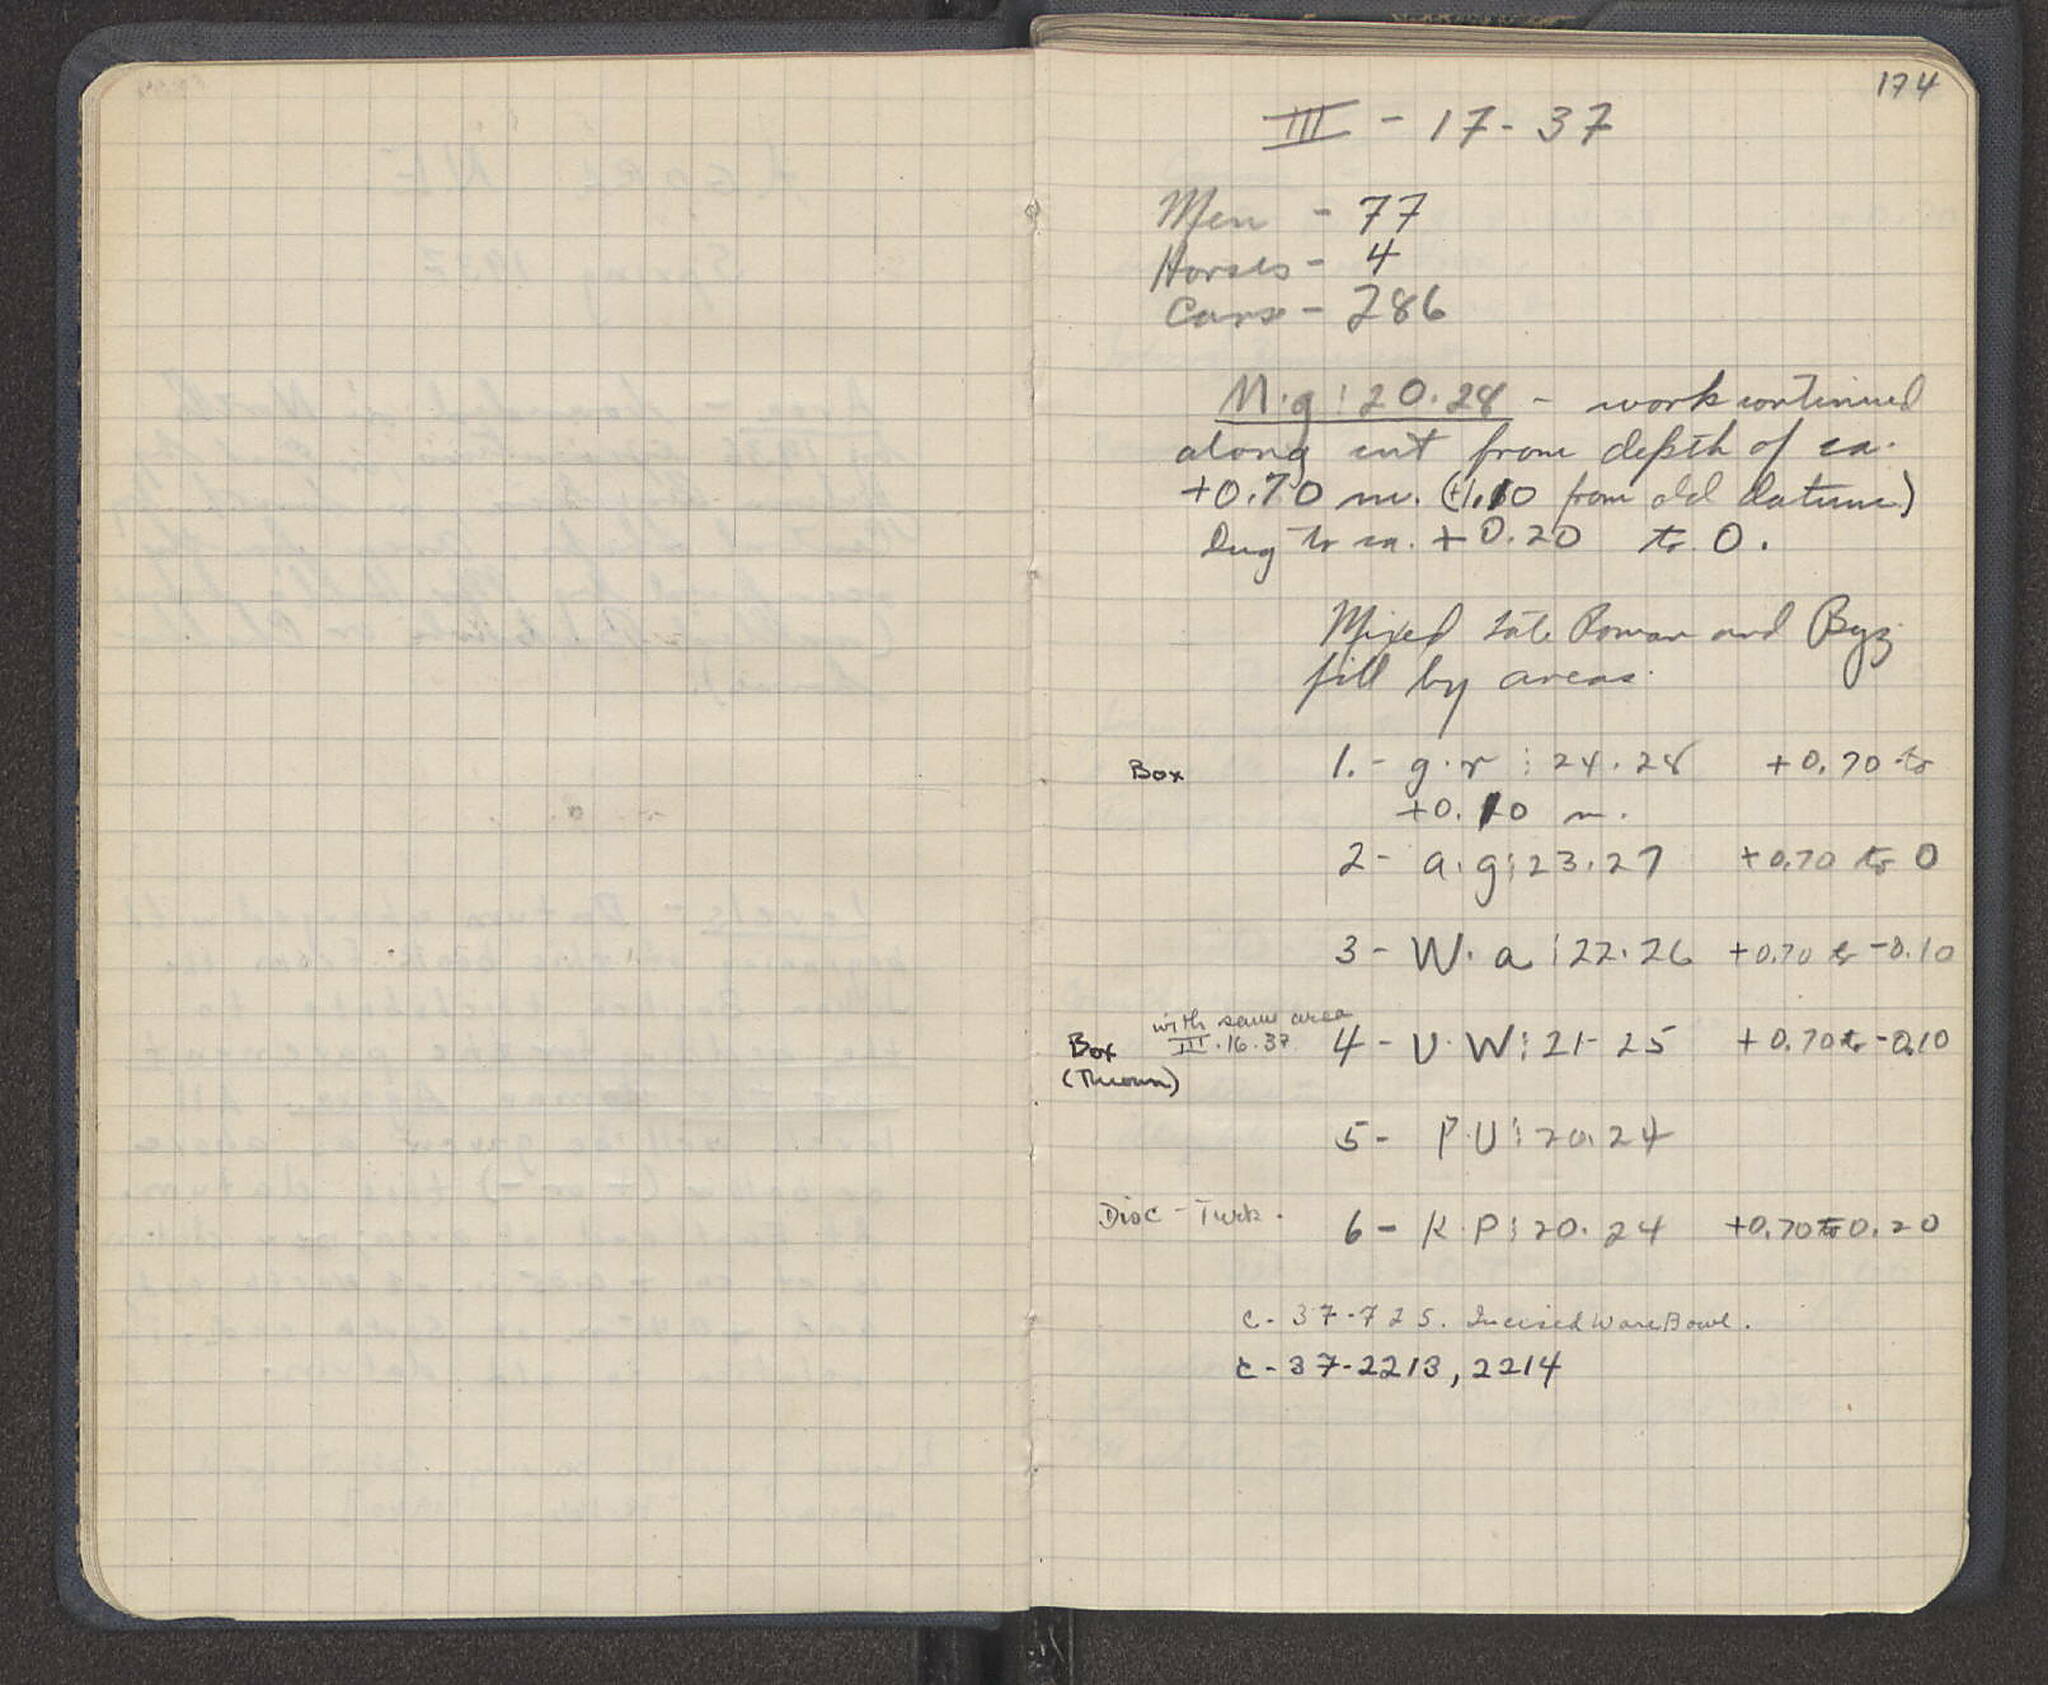 174
III - 17 - 37
Men - 77
Horses - 4
Cars - 286
N·g : 20.28 - work continued
along cut from depth of ca.
+0.70 m. (+1.10 from old datum)
Dug to ca. +0.20 to 0.
Mixed Late Roman and Byz
fill by areas.
Box 1. - g·r : 24.28 +0.70 to
+0.10 m.
2 - a·g : 23.27 +0.70 to 0
3 - W·a : 22.26 +0.70 to -0.10
with same area
Box III.16.37 4 - U·W : 21-25 +0.70 to -0.10
(Thrown)
5 - P·U : 20.24
Disc - Turk. 6 - K·P : 20.24 +0.70 to 0.20
c-37-725. Incised Ware Bowl.
c-37-2213, 2214